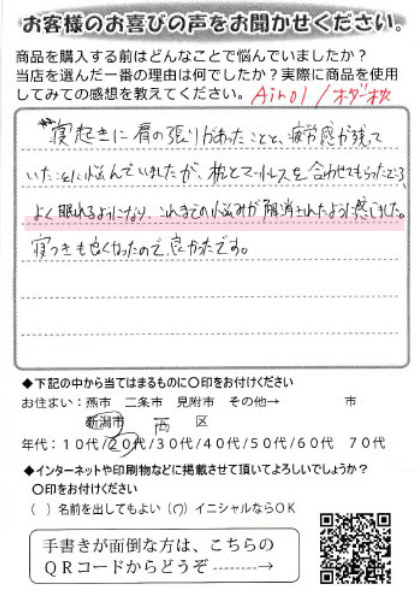 お客様のお喜びの声をお聞かせください。
商品を購入する前はどんなことで悩んでいましたか？
当店を選んだ一番の理由は何でしたか？実際に商品を使用
してみての感想を教えてください。 Air01/オーダー枕
寝起きに肩の張りがあったことと、疲労感が残って
いたことに悩んでいましたが、枕とマットレスを合わせてもらったところ、
よく眠れるようになり、これまでの悩みが解消されたように感じました。
寝つきも良くなったので、良かったです。
◆下記の中から当てはまるものに○印をお付けください
お住まい：燕市　三条市　見附市　その他→　　　市
新潟市　西　区
年代：１０代/２０代/３０代/４０代/５０代/６０代　７０代
◆インターネットや印刷物などに掲載させて頂いてよろしいでしょうか？
○印をお付けください
（　）名前を出してもよい（○）イニシャルならＯＫ
手書きが面倒な方は、こちらの
ＱＲコードからどうぞ--------→